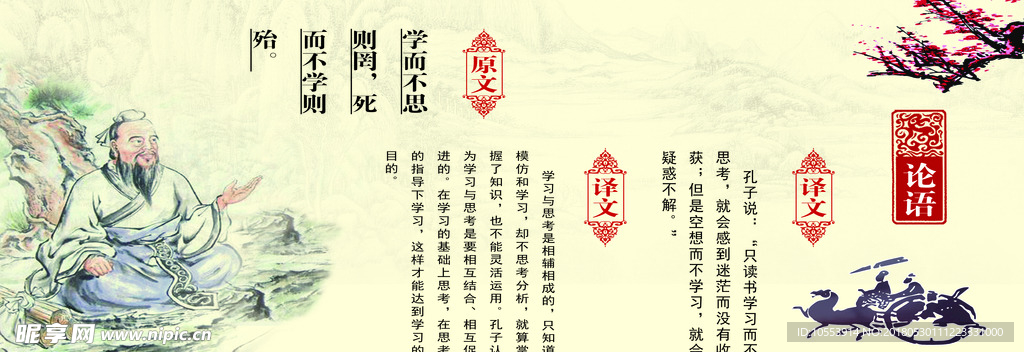 论语
译文
孔子说：“只读书学习而不
思考，就会感到迷茫而没有收
获；但是空想而不学习，就会
疑惑不解。”
译文
学习与思考是相辅相成的，只知道
模仿和学习，却不思考分析，就算掌
握了知识，也不能灵活运用。孔子认
为学习与思考是要相互结合、相互促
进的。在学习的基础上思考，在思考
的指导下学习，这样才能达到学习的
目的。
原文
学而不思
则罔，死
而不学则
殆。
昵享网 www.nipic.cn